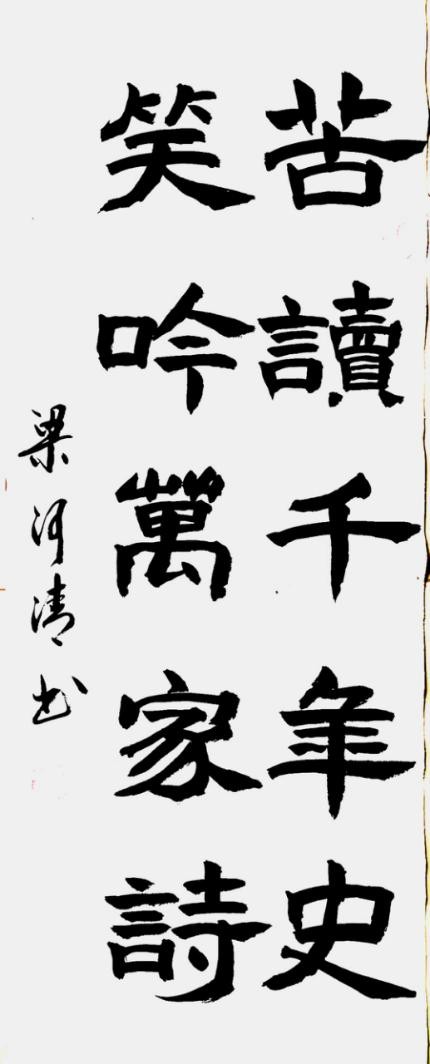 苦讀千年史
笑吟萬家詩
梁河清书